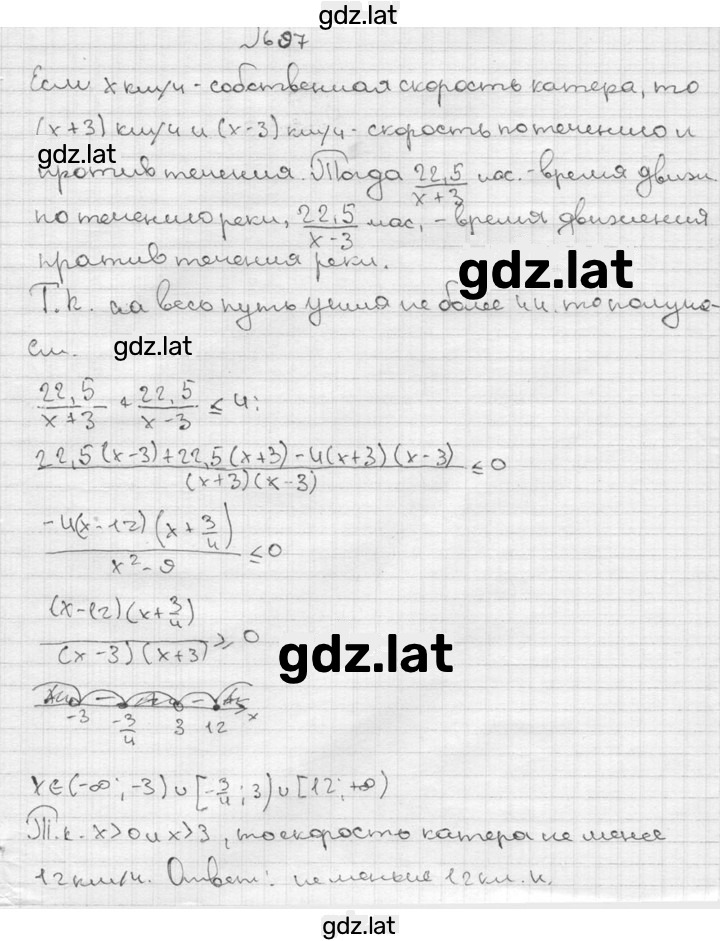 gdz.lat
№697
Если x км/ч - собственная скорость катера, то
(x+3) км/ч и (x-3) км/ч - скорость по течению и
gdz.lat
против течения. Тогда 22,5/(x+3) час. - время движ.
по течению реки, 22,5/(x-3) час, - время движения
против течения реки.
gdz.lat
Т.к. на весь путь ушли не более 4ч. то получа-
ем.
gdz.lat
22,5/(x+3) + 22,5/(x-3) ≤ 4:
(22,5(x-3)+22,5(x+3)-4(x+3)(x-3))/((x+3)(x-3)) ≤ 0
(-4(x-12)(x+3/4))/(x²-9) ≤ 0
((x-12)(x+3/4))/((x-3)(x+3)) ≥ 0
gdz.lat
- -
-3 -3/4 3 12 x
x∈(-∞;-3)∪[-3/4;3)∪[12;+∞)
Т.к. x>0 и x>3, то скорость катера не менее
12 км/ч. Ответ: не меньше 12 км.ч.
gdz.lat